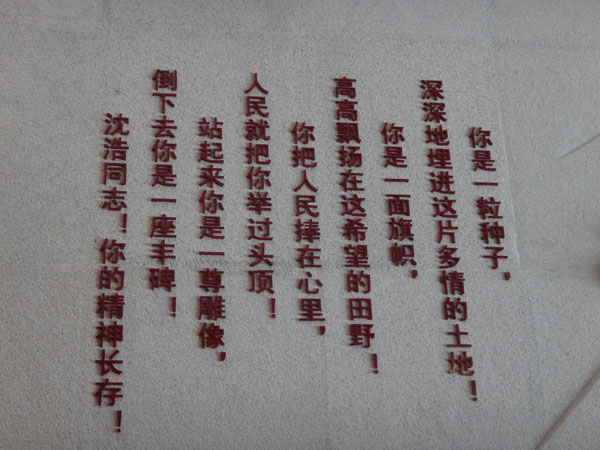 你是一粒种子，
深深地埋进这片多情的土地！
你是一面旗帜，
高高飘扬在这希望的田野！
你把人民捧在心里，
人民就把你举过头顶！
站起来你是一尊雕像，
倒下去你是一座丰碑！
沈浩同志！你的精神长存！